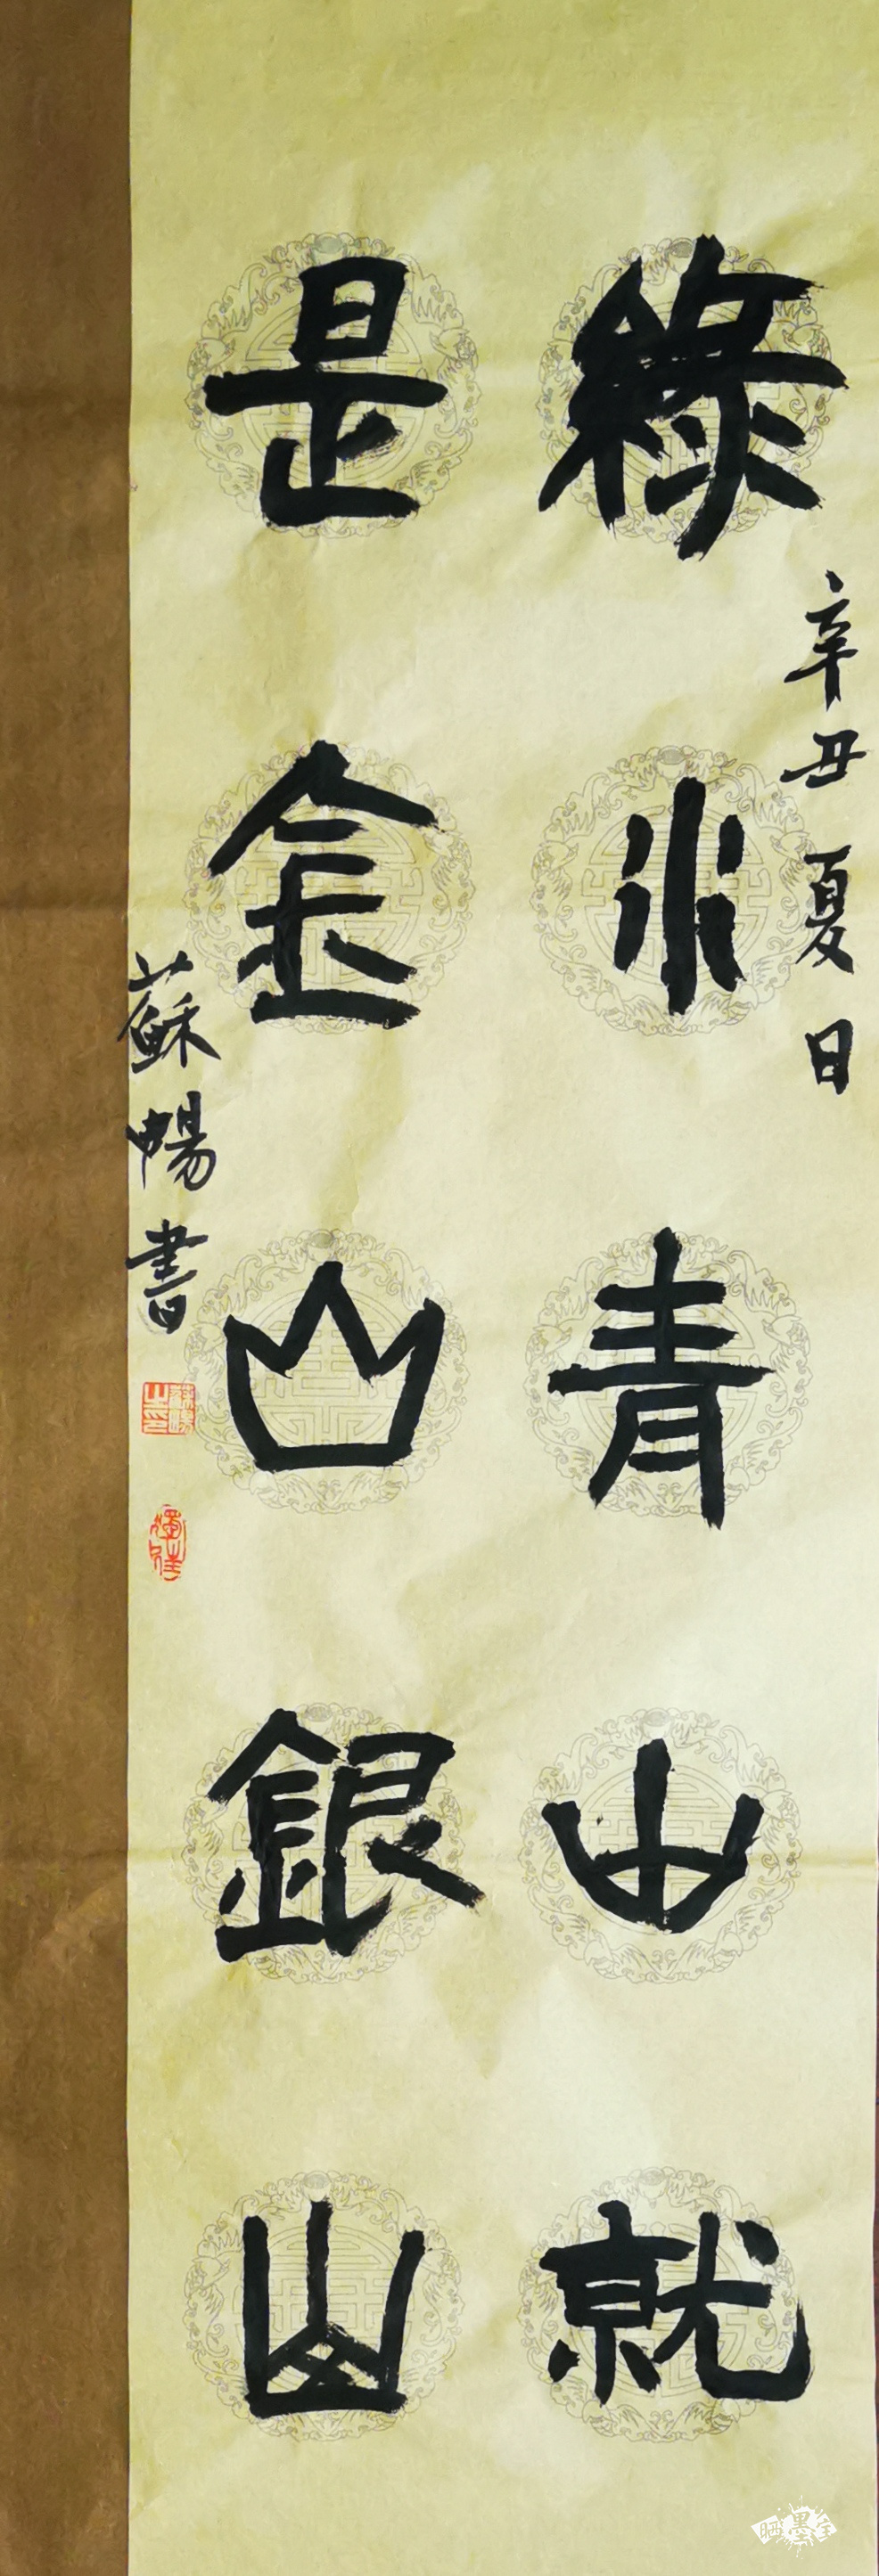 綠水青山就
辛丑夏日
是金山銀山
蘇暢書
晒墨宝